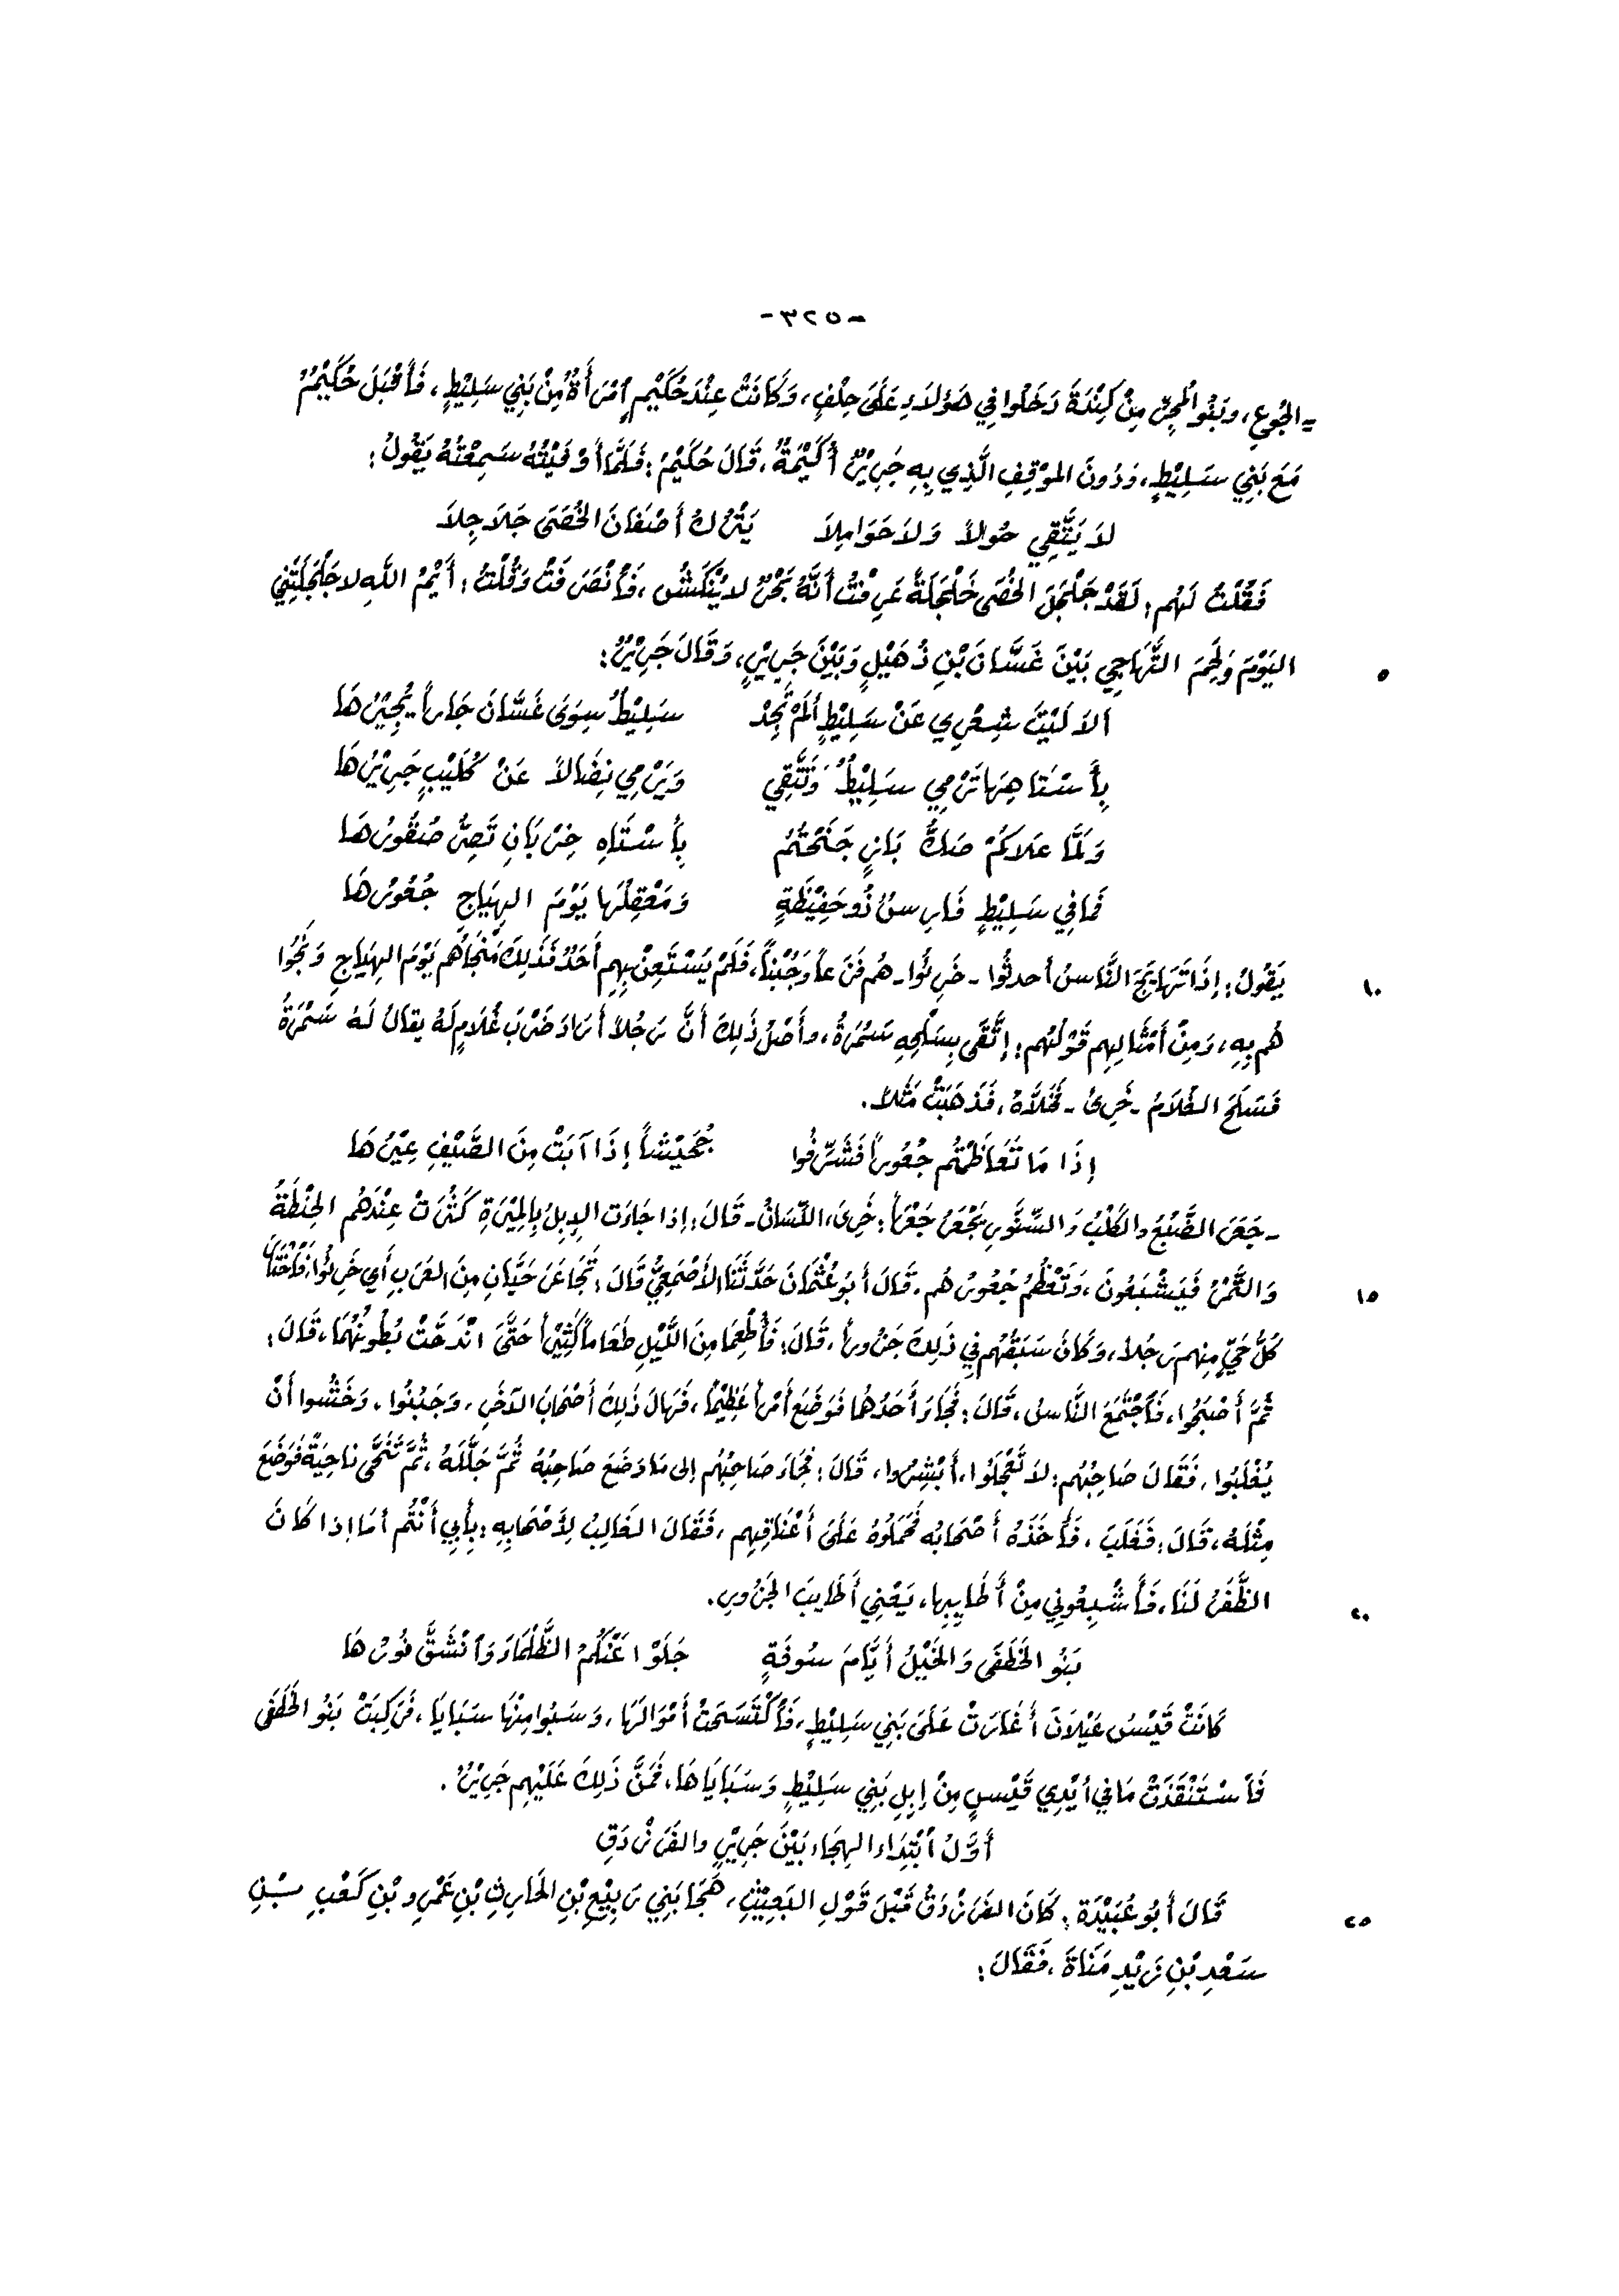 -٣٢٥-
= الجُوعِ، وبَنُو المُجِرِّ مِنْ كِنْدَةَ دَخَلُوا فِي هَؤُلاَءِ عَلَى حِلْفٍ، وَكَانَتْ عِنْدَ حُكَيْمٍ ٱمْرَأَةٌ مِنْ بَنِي سَلِيْطٍ، فَأَقْبَلَ حُكَيْمٌ
مَعَ بَنِي سَلِيْطٍ، وَدُونَ المَوْقِفِ الَّذِي بِهِ جَرِيْرٌ أُكَيْمَةٌ، قَالَ حُكَيْمٌ: فَلَمَّا أَوْفَيْتُهُ سَمِعْتُهُ يَقُولُ:
لاَ يَتَّقِي حُولاً وَلاَ حَوَامِلاَ يَتْرُكُ أَصْفَانَ الخُصَى جَلاَجِلاَ
فَقُلْتُ لَهُم: لَقَدْ جَلْجَلَ الخُصَى جَلْجَلَةً عَرِفْتُ أَنَّهُ بَحْرٌ لا يُنْكَشُ، فَٱنْصَرَفْتُ وَقُلْتُ: أَيْمُ اللهِ لا جَلْجَلَتْنِي
اليَوْمَ وَلُحِمَ التَّهَاجِي بَيْنَ غَسَّانَ بْنِ ذُهَيْلٍ وَبَيْنَ جَرِيْرٍ، وَقَالَ جَرِيْرٌ: ٥
أَلاَ لَيْتَ شِعْرِي عَنْ سَلِيْطٍ أَلَمْ تَجِدْ سَلِيْطٌ سِوَى غَسَّانَ جَاراً يُجِيْرُهَا
بِأَسْتَاهِهَا تَرْمِي سَلِيْطٌ وَتَتَّقِي وَيَرْمِي نِضَالاً عَنْ كُلَيْبٍ جَرِيْرُهَا
وَلَمَّا عَلاَكُمْ صَكُّ بَازٍ جَنَحْتُمُ بِأَسْتَاهِ خِرْبَانٍ تَصِرُّ صُقُورُهَا
فَمَا فِي سَلِيْطٍ فَارِسٌ ذُو حَفِيْظَةٍ وَمَعْقِلُهَا يَوْمَ الهِيَاجِ جُعُورُهَا
يَقُولُ: إِذَا تَهَايَجَ النَّاسُ أحدثُوا - خَرِئُوا - هُم فَزَعاً وَجُبْناً، فَلَمْ يَسْتَعِنْ بِهِم أَحَدٌ فَذَلِكَ مَنْجَاهُم يَوْمَ الهِيَاجِ وَنَجُوا ١٠
هُم بِهِ، وَمِنْ أَمْثَالِهِم قَوْلُهُم: إِتَّقَى بِسَلْحِهِ سَمُرَةُ، وأَصْلُ ذَلِكَ أَنَّ رَجُلاً أَرَادَ ضَرْبَ غُلاَمٍ لَهُ يقَالُ لَهُ سَمُرَةُ
فَسَلَحَ الغُلاَمُ - خَرِئَ - فَخَلاَّهُ، فَذَهَبَتْ مَثَلاً.
إِذَا مَا تَعَاظَمْتُم جُعُوراً فَشَرِّفُوا جُحَيْشاً إِذَا آبَتْ مِنَ الصَّيْفِ عِيْرُهَا
- جَعَرَ الضَّبْعُ والكَلْبُ وَالسِّنَّورُ يَجْعَرُ جَعْراً: خَرِئَ، اللِّسَانُ - قَالَ: إذا جَاءَت الإِبِلُ بِالمِيْرَةِ كَثُرَتْ عِنْدَهُم الحِنْطَةُ
وَالتَّمْرُ فَيَشْبَعُونَ، وَتَعْظُمُ جُعُورُهُم. قَالَ أَبُو عُثْمَانَ حَدَّثَنَا الأَصْمَعِيُّ قَالَ: تَجَاعَرَ حَيَّانِ مِنَ العَرَبِ أَي خَرِئُوا، فَاخْتَارَ ١٥
كُلُّ حَيٍّ مِنهم رَجُلاً، وَكَانَ سَبَقُهُم فِي ذَلِكَ جَزُوراً، قَالَ: فَأُطْعِمَا مِنَ اللَّيْلِ طَعَاماً كَثِيْراً حَتَّى انْدَحَّتْ بُطُونُهُمَا، قَالَ:
ثُمَّ أَصْبَحُوا، فَٱجْتَمَعَ النَّاسُ، قَالَ: فَجَاءَ أَحَدُهُمَا فَوَضَعَ أَمْراً عَظِيْماً، فَهَالَ ذَلِكَ أَصْحَابَ الآخَرِ، وَجَبُنُوا، وَخَشُوا أَنْ
يُغْلَبُوا، فَقَالَ صَاحِبُهُم: لاَ تَعْجَلُوا، أَبْشِرُوا، قَالَ: فَجَاءَ صَاحِبُهُم إلى مَا وَضَعَ صَاحِبُهُ ثُمَّ جَلَّلَهُ، ثُمَّ تَنَحَّى ناحِيَةً فَوَضَعَ
مِثْلَهُ، قَالَ: فَغَلَبَ، فَأَخَذَهُ أَصْحَابُه فَحَمَلُوهُ عَلَى أَعْنَاقِهِم، فَقَالَ الغَالِبُ لِأَصْحَابِهِ: بِأَبِي أَنْتُم أمَا إذا كَانَ
الظَّفَرُ لَنَا، فَأَشْبِعُونِي مِنْ أَطَايِبِهَا، يَعْنِي أَطَايِبَ الجَزُورِ. ٢٠
بَنُو الخَطَفَى وَالخَيْلُ أَيَّامَ سُوفَةٍ جَلَوْا عَنْكُمُ الظَّلْمَاءَ وَٱنْشَقَّ نُورُهَا
كَانَتْ قَيْسُ عَيْلاَنَ أَغَارَتْ عَلَى بَنِي سَلِيْطٍ، فَٱكْتَسَحَتْ أَمْوَالَهَا، وَسَبُوا مِنْهَا سَبَايَا، فَرَكِبَتْ بَنُو الخَطَفَى
فَٱسْتَنْقَذَتْ مَا فِي أَيْدِي قَيْسٍ مِنْ إِبِلِ بَنِي سَلِيْطٍ وَسَبَايَاهَا، فَمَنَّ ذَلِكَ عَلَيْهِم جَرِيْرٌ.
أَوَّلُ ٱبْتِدَاءِ الهِجَاءِ بَيْنَ جَرِيْرٍ والفَرَزْدَقِ
قَالَ أَبُو عُبَيْدَةَ: كَانَ الفَرَزْدَقُ قَبْلَ قَوْلِ البَعِيْثِ، هَجَا بَنِي رَبِيْعِ بْنِ الحَارِثِ بْنِ عَمْرِو بْنِ كَعْبِ بْنِ ٢٥
سَعْدِ بْنِ زَيْدِ مَنَاةَ، فَقَالَ: